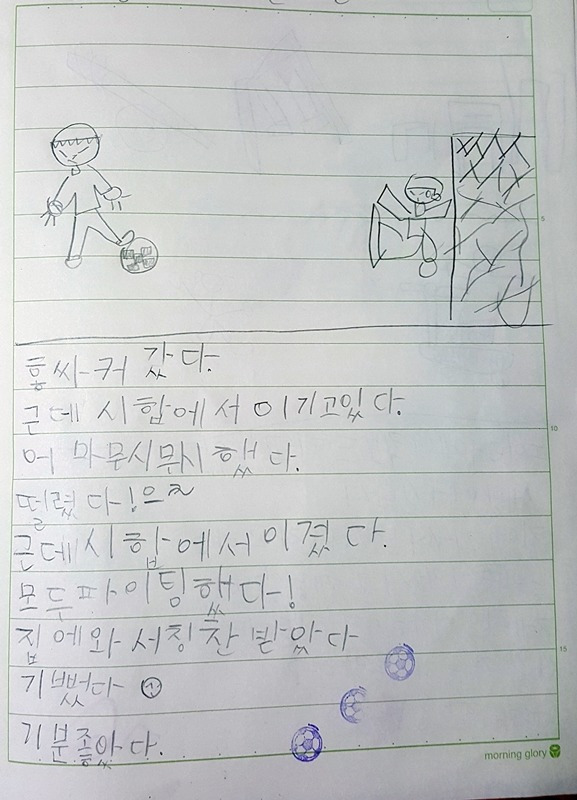 흫싸커 갔다.
근데 시합에서 이기고있다.
어 마무시무시 했다.
떨렸다!으~
근데시합에서이겼다.
모두파이팅했다!
집에와서칭찬받았다
기뻤다
기분좋았다.
5
10
15
morning glory